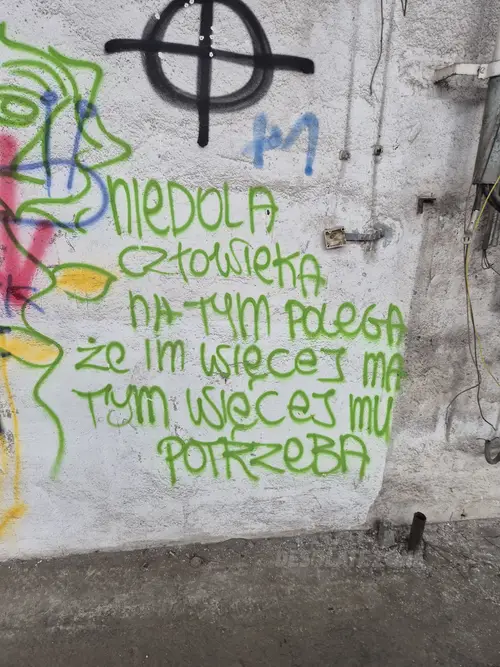 NIEDOLA
CZŁOWIEKA
NA TYM POLEGA
ŻE IM WIĘCEJ MA
TYM WIĘCEJ MU
POTRZEBA